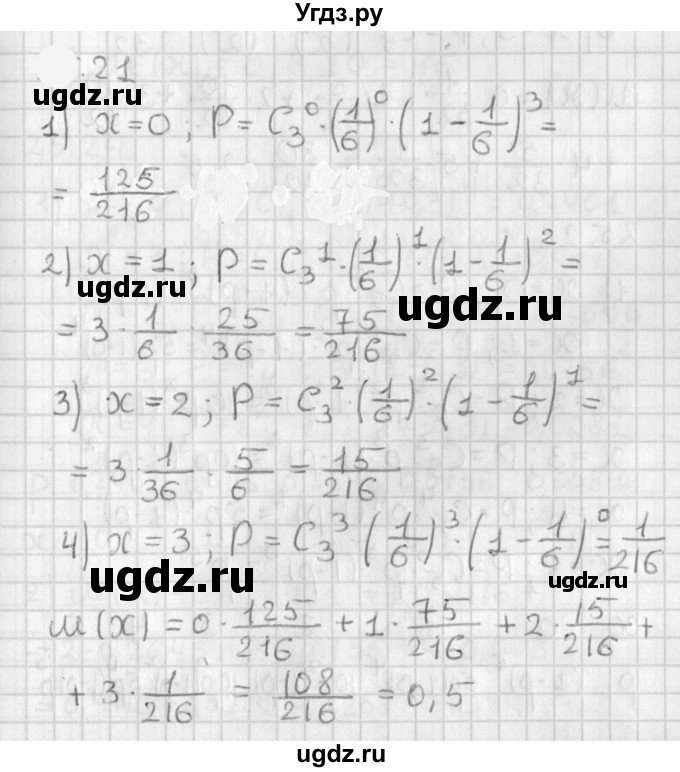 Угдз.ру
21
ugdz.ru
1) x=0; P = C₃⁰·(1/6)⁰·(1 - 1/6)³ =
= 125/216
2) x=1; P = C₃¹·(1/6)¹·(1 - 1/6)² =
ugdz.ru
ugdz.ru
= 3·1/6·25/36 = 75/216
3) x=2; P = C₃²·(1/6)²·(1 - 1/6)¹ =
= 3·1/36·5/6 = 15/216
4) x=3; P = C₃³·(1/6)³·(1 - 1/6)⁰ = 1/216
ugdz.ru
ugdz.ru
M(X) = 0·125/216 + 1·75/216 + 2·15/216 +
+ 3·1/216 = 108/216 = 0,5
ugdz.ru
ugdz.ru